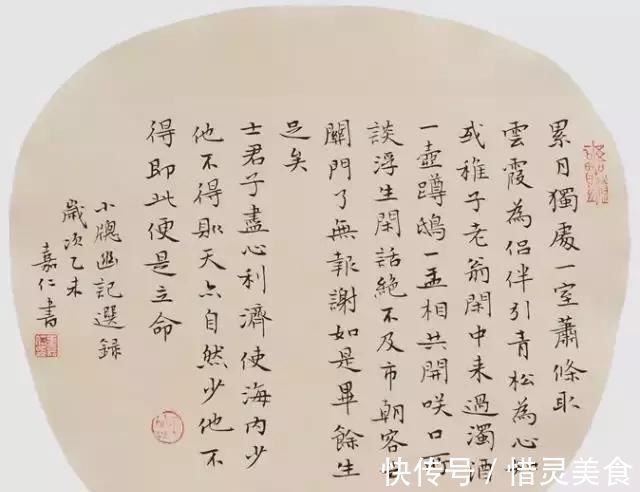 累月獨處一室蕭條取
雲霞為侶伴引青松為心
或稚子老翁閑中来過濁酒
一壺蹲鴟一盂相共開咲口所
談浮生閑話絶不及市朝客去
關門了無報謝如是畢餘生
足矣
士君子盡心利濟使海内少
他不得則天亦自然少他不
得即此便是立命
小牕幽記選録
歲次乙未
嘉仁書
快传号 / 惜灵美食